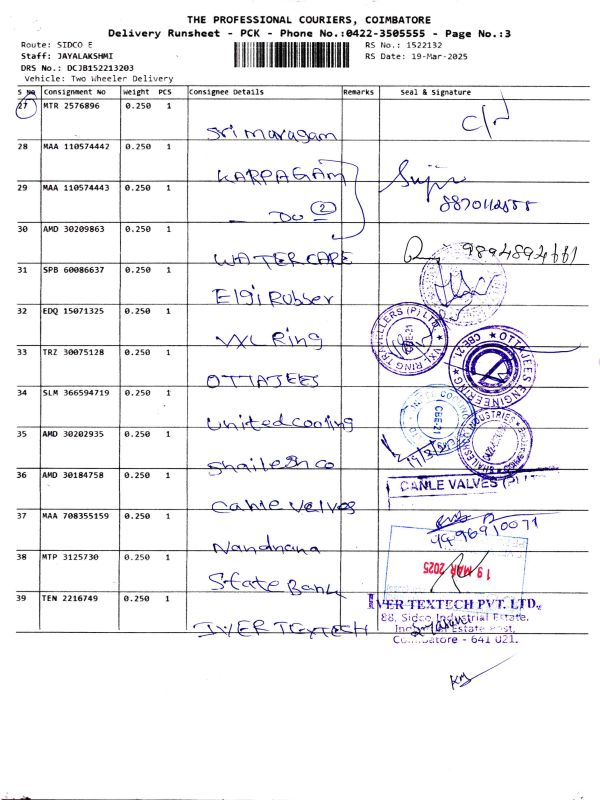 THE PROFESSIONAL COURIERS, COIMBATORE
Delivery Runsheet - PCK - Phone No.:0422-3505555 - Page No.:3
Route: SIDCO E
RS No.: 1522132
Staff: JAYALAKSHMI
RS Date: 19-Mar-2025
DRS No.: DCJB152213203
Vehicle: Two Wheeler Delivery
S No Consignment No Weight PCS Consignee Details Remarks Seal & Signature
27 MTR 2576896 0.250 1
Sri Maragam
28 MAA 110574442 0.250 1
KARPAGAM
29 MAA 110574443 0.250 1
— Do — 2
30 AMD 30209863 0.250 1
WATER CARE
31 SPB 60086637 0.250 1
Elgi Rubber
32 EDQ 15071325 0.250 1
VXL Ring
33 TRZ 30075128 0.250 1
OTTAJEES
34 SLM 366594719 0.250 1
United cooling
35 AMD 30202935 0.250 1
Shailesh co
36 AMD 30184758 0.250 1
Canle Valves
CANLE VALVES (P)
37 MAA 708355159 0.250 1
Nandhana
38 MTP 3125730 0.250 1
State Bank
19 MAR 2025
39 TEN 2216749 0.250 1
IVER TEXTECH
IVER TEXTECH PVT. LTD.,
88, Sidco Industrial Estate,
Industrial Estate Post,
Coimbatore - 641 021.